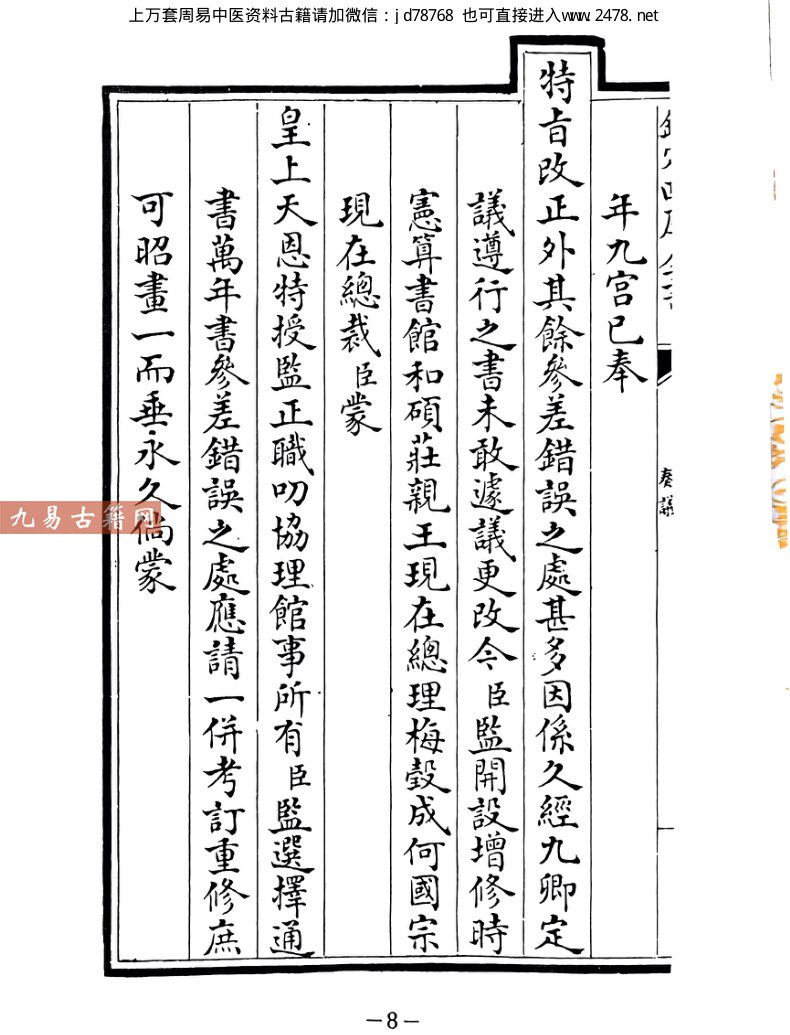 上万套周易中医资料古籍请加微信：jd78768 也可直接进入www.2478.net
奏議
年九宫已奉
特㫖改正外其餘參差錯誤之處甚多因係久經九卿定
議遵行之書未敢遽議更改今臣監開設增修時
憲算書館和碩莊親王現在總理梅瑴成何國宗
現在總裁臣蒙
皇上天恩特授監正職叨協理館事所有臣監選擇通
書萬年書參差錯誤之處應請一併考訂重修庶
可昭畫一而垂永久倘蒙
九易古籍网
—8—